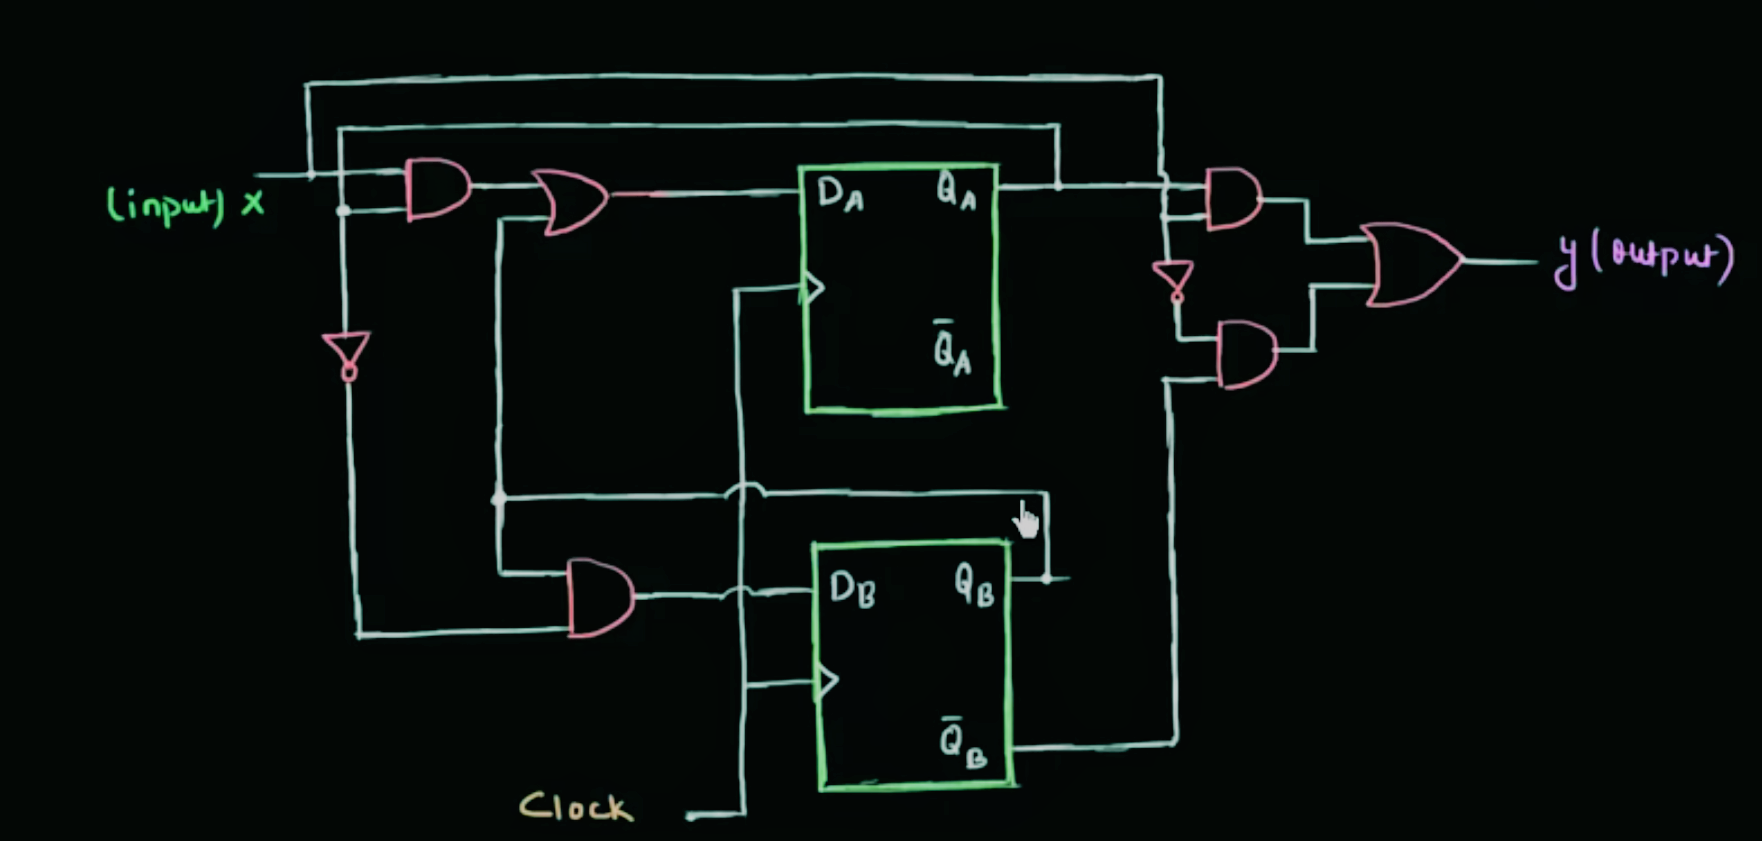 (input) x
D_A
Q_A
Q̅_A
y (output)
D_B
Q_B
Q̅_B
Clock